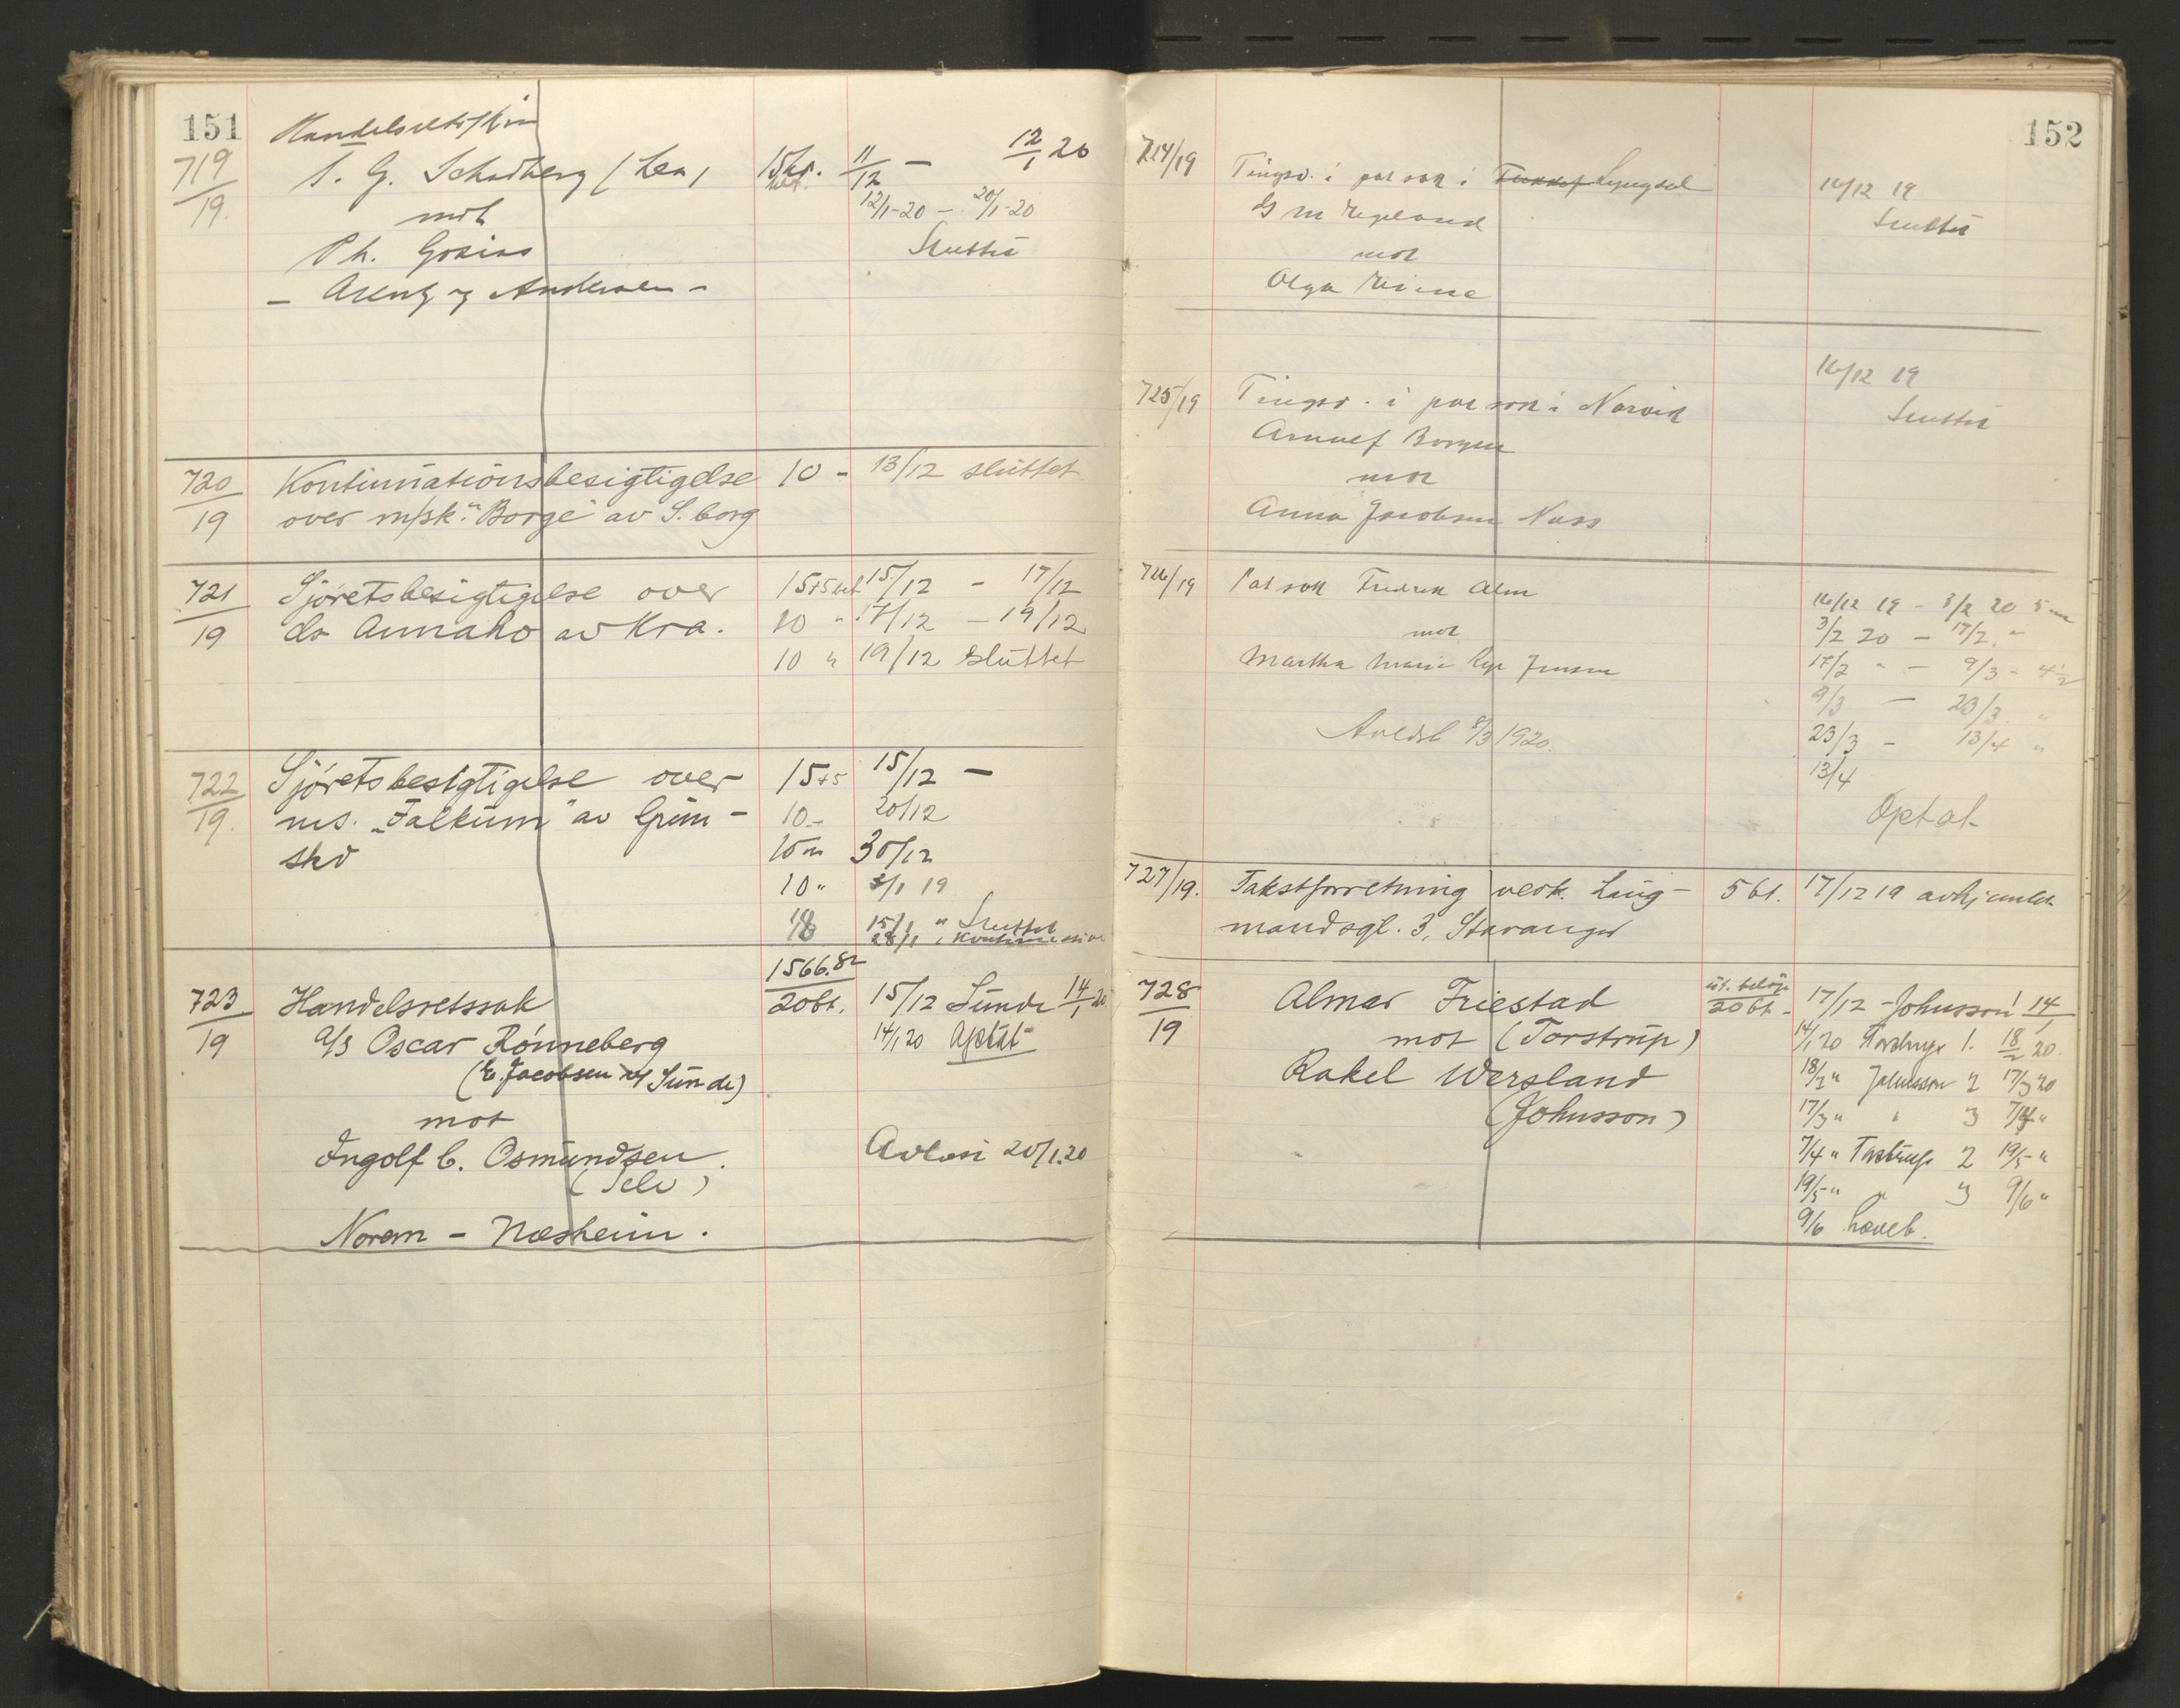 151
719/19. S. G. (Lea) 15kr. 11/12 — 12/1 20
mot 12/1-20 — 20/1-20
Ph. Sluttet
— og Andersen —
720/19 Kontinuationsbesigtigelse 10 - 13/12 sluttet
over m/sk. "Borge" av S.borg
721/19 Sjøretsbesigtigelse over 15+5 bet 15/12 - 17/12
ds Annaho av Kra. 10 " 17/12 - 19/12
10 " 19/12 sluttet
722/19. Sjøretsbesigtigelse over 15+5 15/12 —
ms. "Falkum" av Grim- 10- 20/12
stad 30/12
10 " /1 19
15/1 " Sluttet
28/1
1566.82
723/19 Handelsretssak 20 bt. 15/12 Sunde 14/1 20
a/s Oscar Rønneberg 14/1 20 Optat
(E. Jacobsen v/ Sunde)
mot
Ingolf C. Osmundsen. 20/1.20
(Selv)
Norem - Næsheim.
152
724/19 Tingsv. i par sak i Lyngdal 16/12 19
Sluttet
mot
Olga
725/19 Tingsv. i par sak i Narvik 16/12 19
Sluttet
mot
Anna Jacobsen Næss
726/19 Par sak Fredrik Alm 16/12 19 - 3/2 20 5
mot 3/2 20 - 17/2 "
Martha Marie Jensen 17/2 " - 9/3 - 4 1/2
9/3 — 23/3 "
8/3 1920. 23/3 - 13/4 "
13/4
Optat
727/19. Takstforretning vedk. Laug- 5 bt. 17/12 19 avhjemlet
mandsgt. 3, Stavanger
728/19 Almar Friestad ut. beløp 20 bt - 17/12 - Johnsson 1 14/1
mot (Torstrup) 14/1 20 Torstrup 1. 18/2 20.
Rakel Wersland 18/2 " Johnsson 2 17/3 20
(Johnsson) 17/3 " " 3 7/4 "
7/4 " Torstrup 2 19/5 "
19/5 " " 3 9/6 "
9/6 hævet.